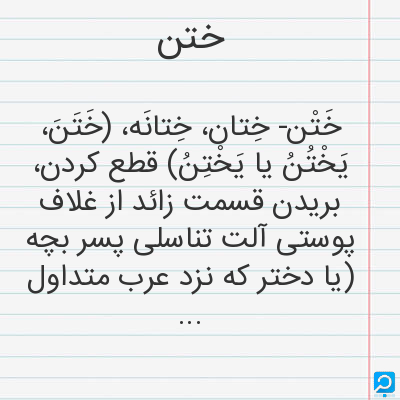 ختن
خَتْن- خِتان، خِتانَه، (خَتَنَ،
يَخْتُنُ يا يَخْتِنُ) قطع كردن،
بريدن قسمت زائد از غلاف
پوستى آلت تناسلى پسر بچه
(يا دختر كه نزد عرب متداول
...